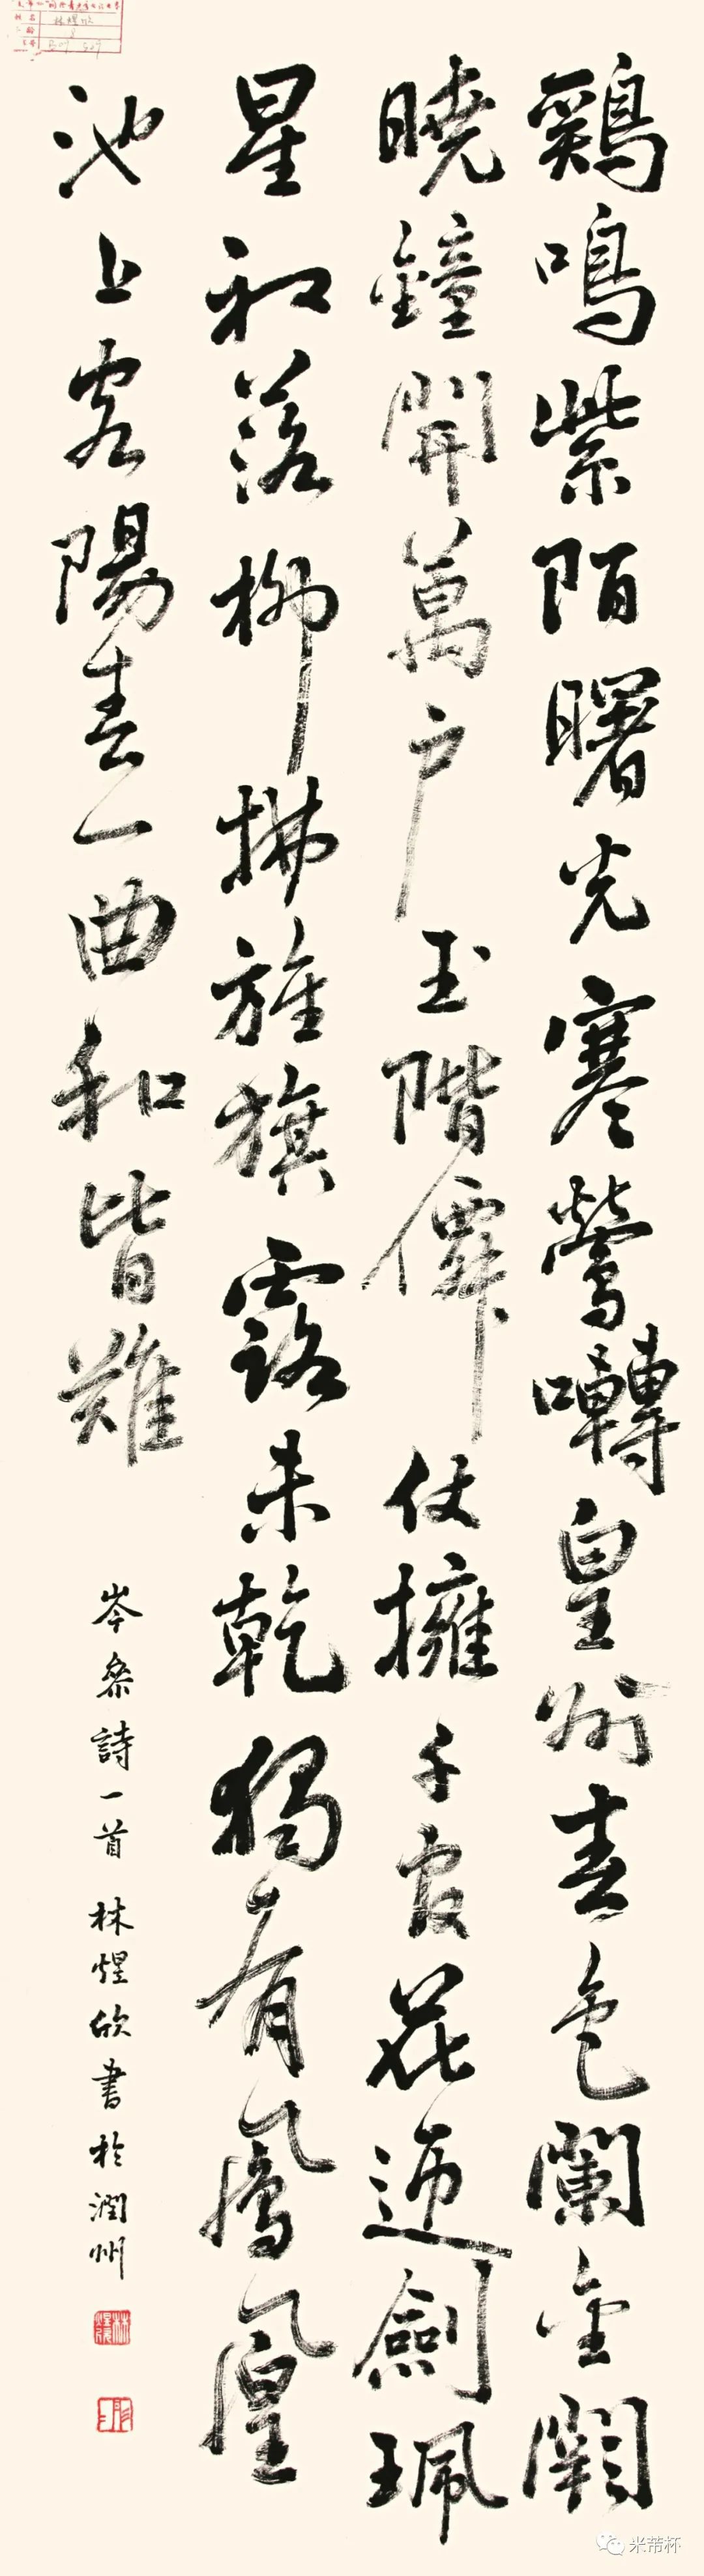 鷄鳴紫陌曙光寒鶯囀皇州春色闌金闕
曉鐘開萬户玉階僊仗擁千官花迎劍珮
星初落柳拂旌旗露未乾獨有鳳凰
池上客陽春一曲和皆難
岑參詩一首 林煋欣書於潤州
米芾杯